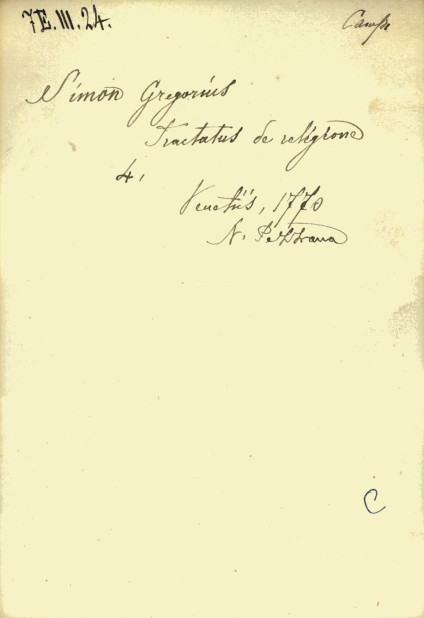 7E.III.24.
Simon Gregorius
Tractatus de religione
4.
Venetiis, 1770
N. Pezzana
C